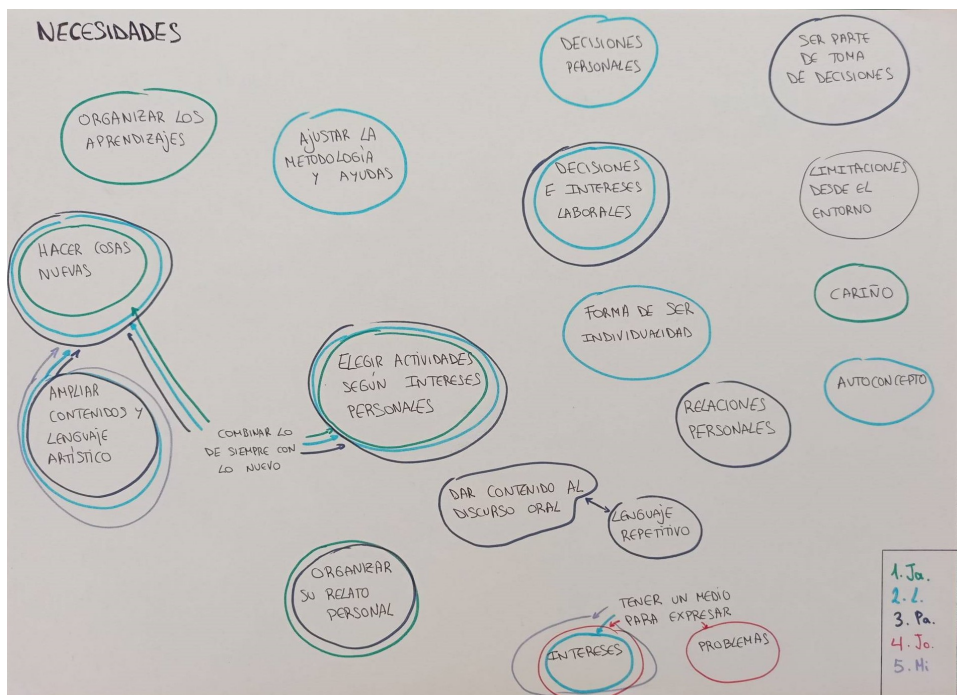 NECESIDADES
ORGANIZAR LOS
APRENDIZAJES
AJUSTAR LA
METODOLOGÍA
Y AYUDAS
DECISIONES
PERSONALES
SER PARTE
DE TOMA
DE DECISIONES
DECISIONES
E INTERESES
LABORALES
LIMITACIONES
DESDE EL
ENTORNO
HACER COSAS
NUEVAS
CARIÑO
FORMA DE SER
INDIVIDUALIDAD
ELEGIR ACTIVIDADES
SEGÚN INTERESES
PERSONALES
AUTOCONCEPTO
AMPLIAR
CONTENIDOS Y
LENGUAJE
ARTÍSTICO
RELACIONES
PERSONALES
COMBINAR LO
DE SIEMPRE CON
LO NUEVO
DAR CONTENIDO AL
DISCURSO ORAL
LENGUAJE
REPETITIVO
ORGANIZAR
SU RELATO
PERSONAL
TENER UN MEDIO
PARA EXPRESAR
INTERESES
PROBLEMAS
1. Ja.
2. L.
3. Pa.
4. Jo.
5. Mi